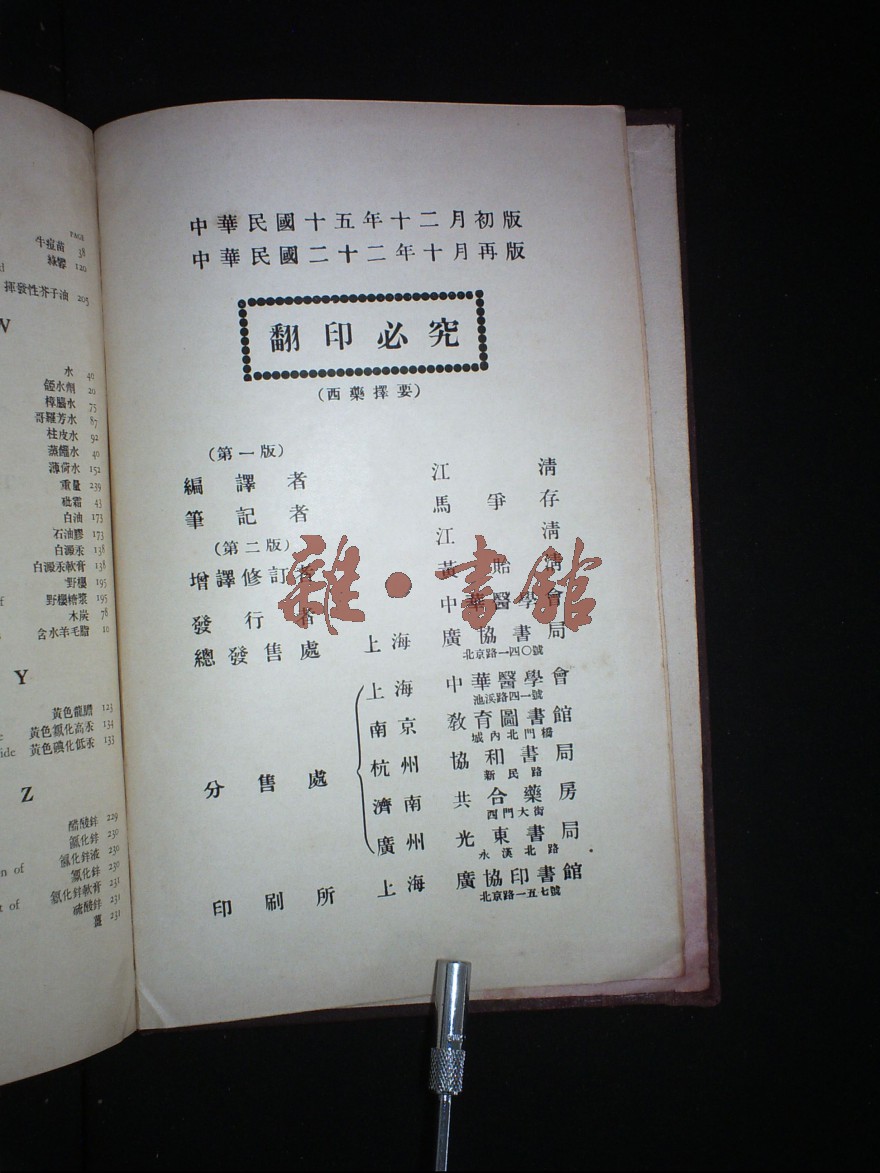 PAGE
牛痘苗 38
綠礬 120
揮發性芥子油 205
W
水 40
樟腦水 75
哥羅芳水 87
桂皮水 92
蒸餾水 40
薄荷水 152
重量 239
砒霜 43
白油 173
石油膠 173
白澱汞 138
白澱汞軟膏 138
野櫻 195
of 野櫻糖漿 195
木炭 78
含水羊毛脂 10
Y
黃色龍膽 123
黃色氯化高汞 134
ide 黃色碘化低汞 133
Z
醋酸鋅 229
氯化鋅 230
on of 氯化鋅液 230
氧化鋅 230
t of 氧化鋅軟膏 231
硫酸鋅 231
薑 231
中華民國十五年十二月初版
中華民國二十二年十月再版
翻印必究
(西藥擇要)
(第一版)
編譯者 江清
筆記者 馬爭存
(第二版) 江清
增譯修訂者 黃貽清
發行者 中華醫學會
總發售處 上海 廣協書局
北京路一四〇號
分售處
上海 中華醫學會
池浜路四一號
南京 教育圖書館
城內北門橋
杭州 協和書局
新民路
濟南 共合藥房
西門大街
廣州 光東書局
永漢北路
印刷所 上海 廣協印書館
北京路一五七號
雜·書館